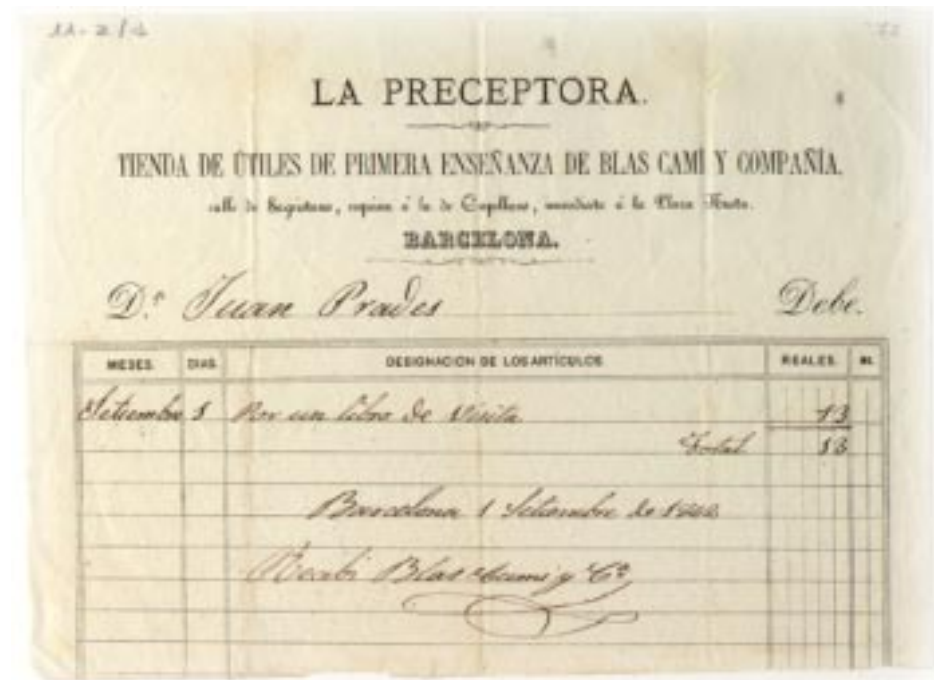 LA PRECEPTORA.
TIENDA DE ÚTILES DE PRIMERA ENSEÑANZA DE BLAS CAMÍ Y COMPAÑÍA.
calle de esquina á la de Capellans, inmediata á la Plaza Nueva.
BARCELONA.
D.n Juan Prades Debe.
MESES. DIAS. DESIGNACION DE LOS ARTÍCULOS REALES. Ms.
Setiembre 1 Por un libro de Visita 13
Total 13
Barcelona 1 Setiembre de
Recibi Blas Cami y Cª